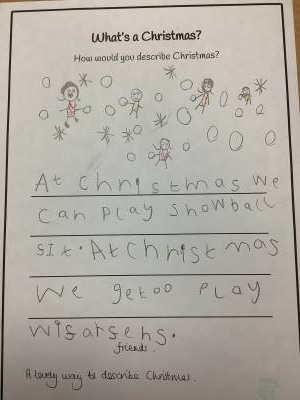 What's a Christmas?
How would you describe Christmas?
At Christmas we
can play snowball
sit. At Christmas
we getoo play
wifarfens.
friends.
A lovely way to describe Christmas.